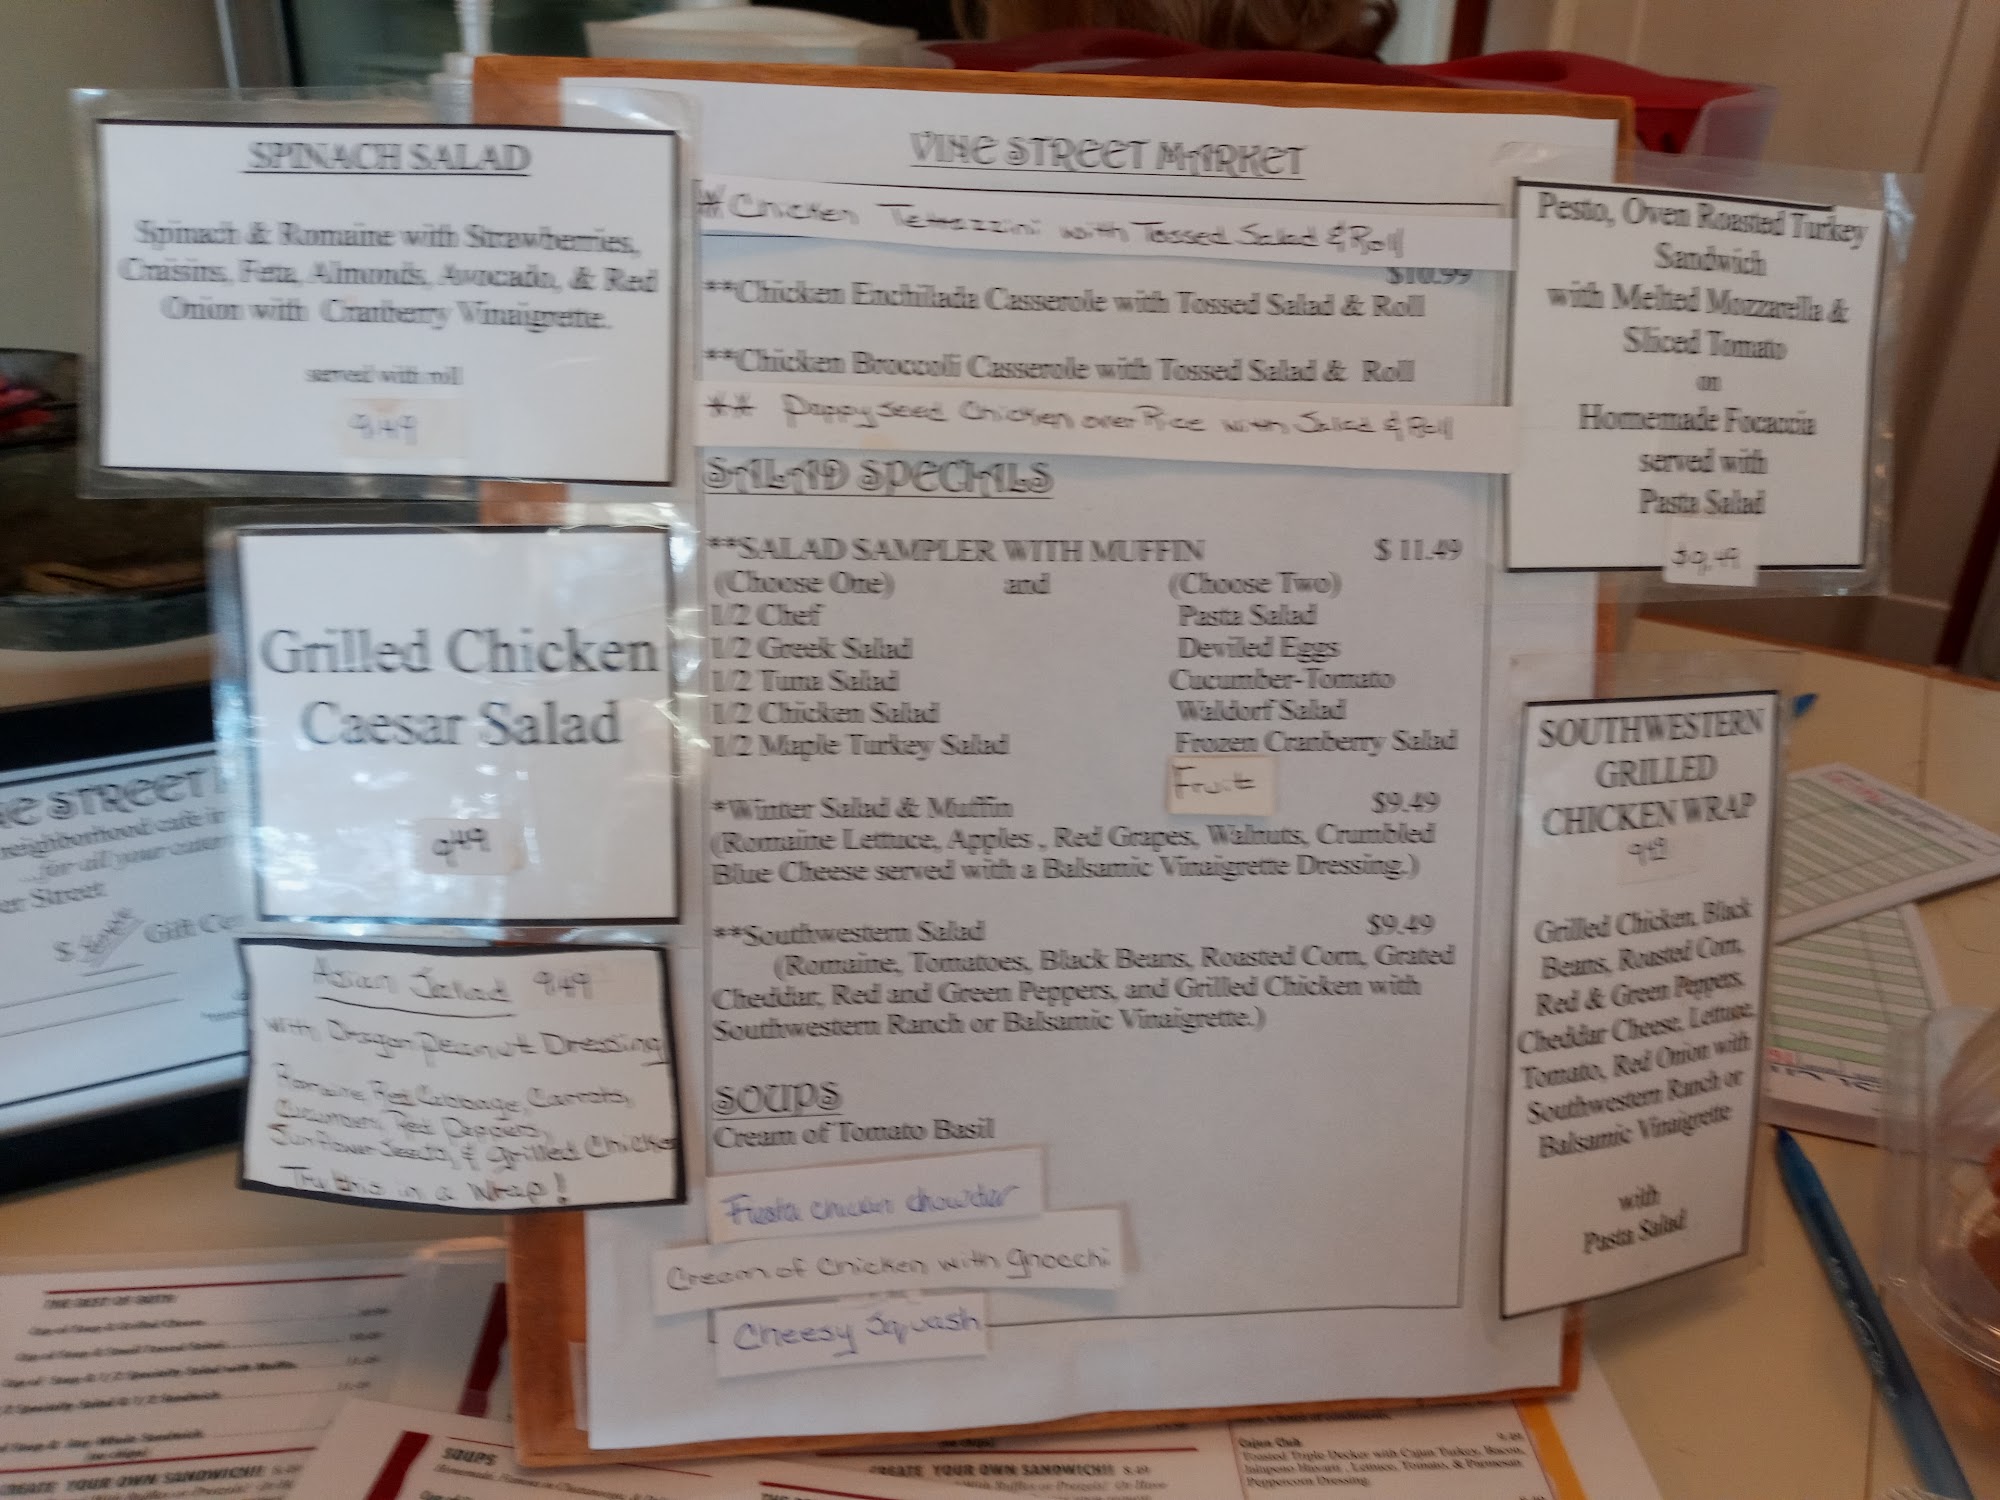 SPINACH SALAD
Spinach & Romaine with Strawberries,
Craisins, Feta, Almonds, Avocado, & Red
Onion with Cranberry Vinaigrette.
served with roll
9.49
Grilled Chicken
Caesar Salad
9.49
Asian Salad 9.49
with Dragon Peanut Dressing
Romaine, Red Cabbage, Carrots,
Cucumbers, Red Peppers,
Sunflower Seeds, & Grilled Chicken
Try this in a wrap!
VINE STREET MARKET
* Chicken Tetrazzini with Tossed Salad & Roll
$10.99
**Chicken Enchilada Casserole with Tossed Salad & Roll
**Chicken Broccoli Casserole with Tossed Salad & Roll
** Poppyseed Chicken over Rice with Salad & Roll
SALAD SPECIALS
**SALAD SAMPLER WITH MUFFIN $ 11.49
(Choose One) and (Choose Two)
1/2 Chef Pasta Salad
1/2 Greek Salad Deviled Eggs
1/2 Tuna Salad Cucumber-Tomato
1/2 Chicken Salad Waldorf Salad
1/2 Maple Turkey Salad Frozen Cranberry Salad
Fruit
*Winter Salad & Muffin $9.49
(Romaine Lettuce, Apples , Red Grapes, Walnuts, Crumbled
Blue Cheese served with a Balsamic Vinaigrette Dressing.)
**Southwestern Salad $9.49
(Romaine, Tomatoes, Black Beans, Roasted Corn, Grated
Cheddar, Red and Green Peppers, and Grilled Chicken with
Southwestern Ranch or Balsamic Vinaigrette.)
SOUPS
Cream of Tomato Basil
Fiesta chicken chowder
Cream of Chicken with Gnocchi
Cheesy Squash
Pesto, Oven Roasted Turkey
Sandwich
with Melted Mozzarella &
Sliced Tomato
on
Homemade Focaccia
served with
Pasta Salad
$9.49
SOUTHWESTERN
GRILLED
CHICKEN WRAP
9.49
Grilled Chicken, Black
Beans, Roasted Corn,
Red & Green Peppers,
Cheddar Cheese, Lettuce,
Tomato, Red Onion with
Southwestern Ranch or
Balsamic Vinaigrette
with
Pasta Salad
STREET
neighborhood café in
...for all your
Street
$ Gift
THE BEST OF BOTH
Cup of Soup & Grilled Cheese
Cup of Soup & Small Tossed Salad
Cup of Soup & 1/2 Specialty Salad with Muffin
1/2 Specialty Salad & 1/2 Sandwich
CREATE YOUR OWN SANDWICH!!
SOUPS
CREATE YOUR OWN SANDWICH!! 8.49
Cajun Club 9.49
Toasted Triple Decker with Cajun Turkey, Bacon,
Jalapeno Havarti , Lettuce, Tomato, & Parmesan
Peppercorn Dressing